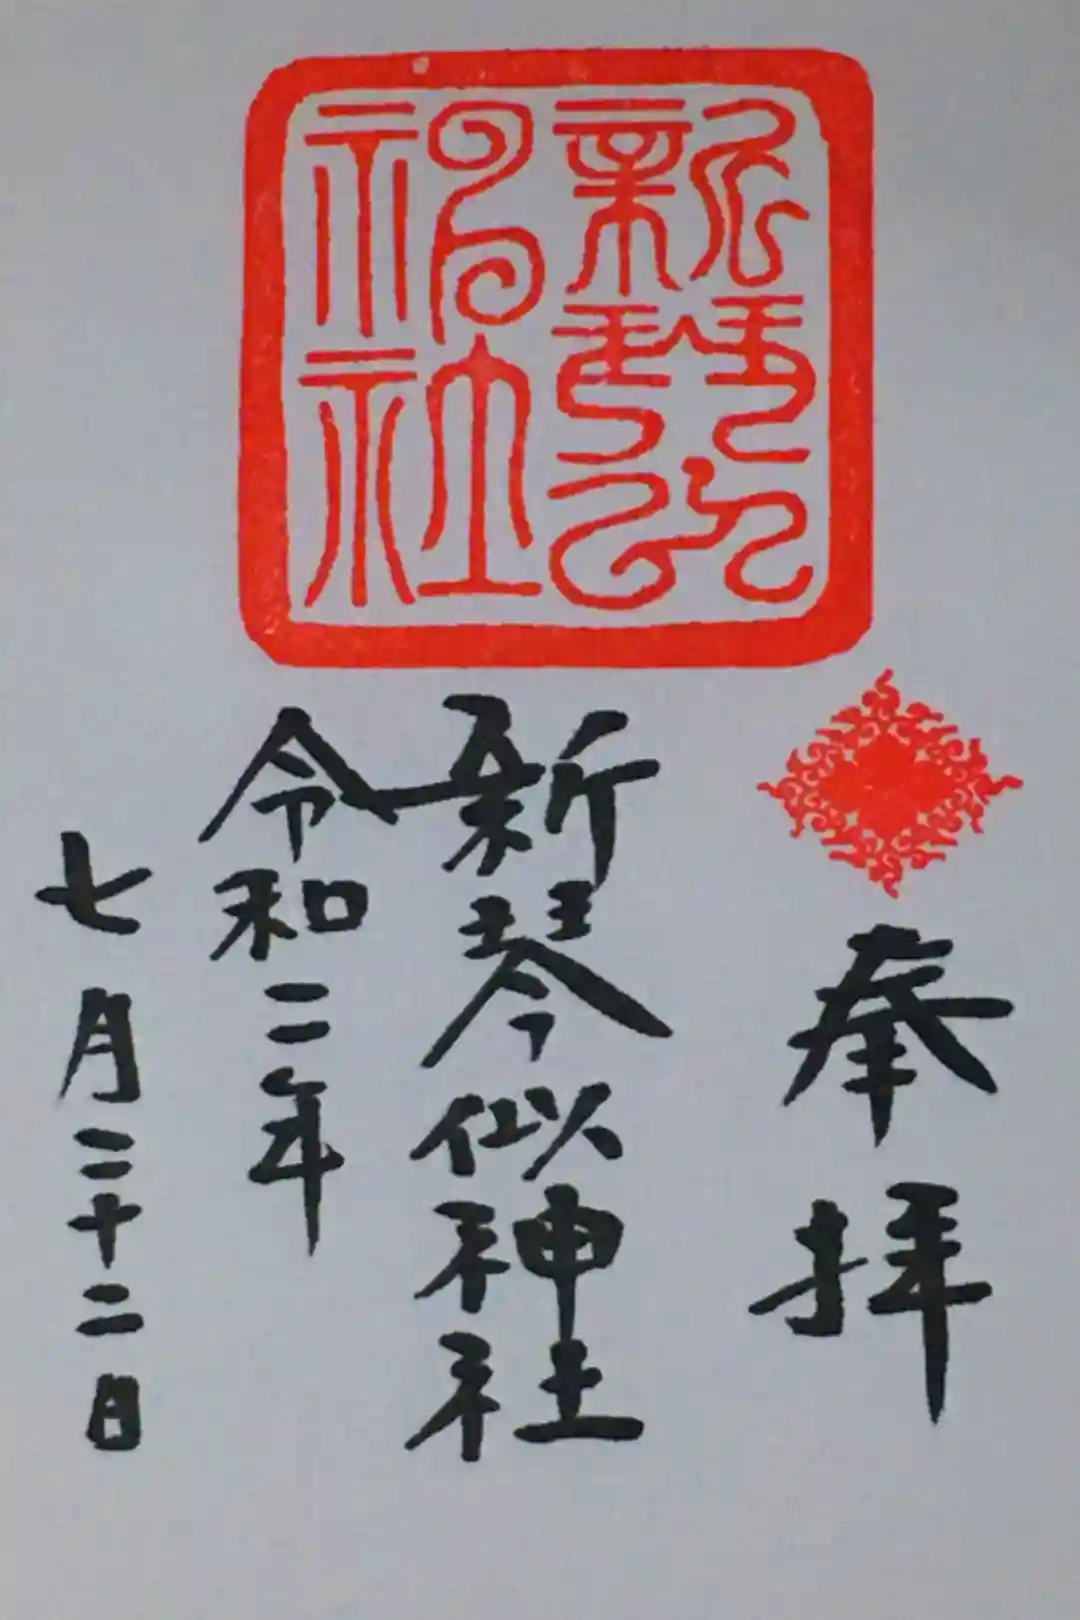 新琴似
神社
奉拝
新琴似神社
令和二年
七月二十二日